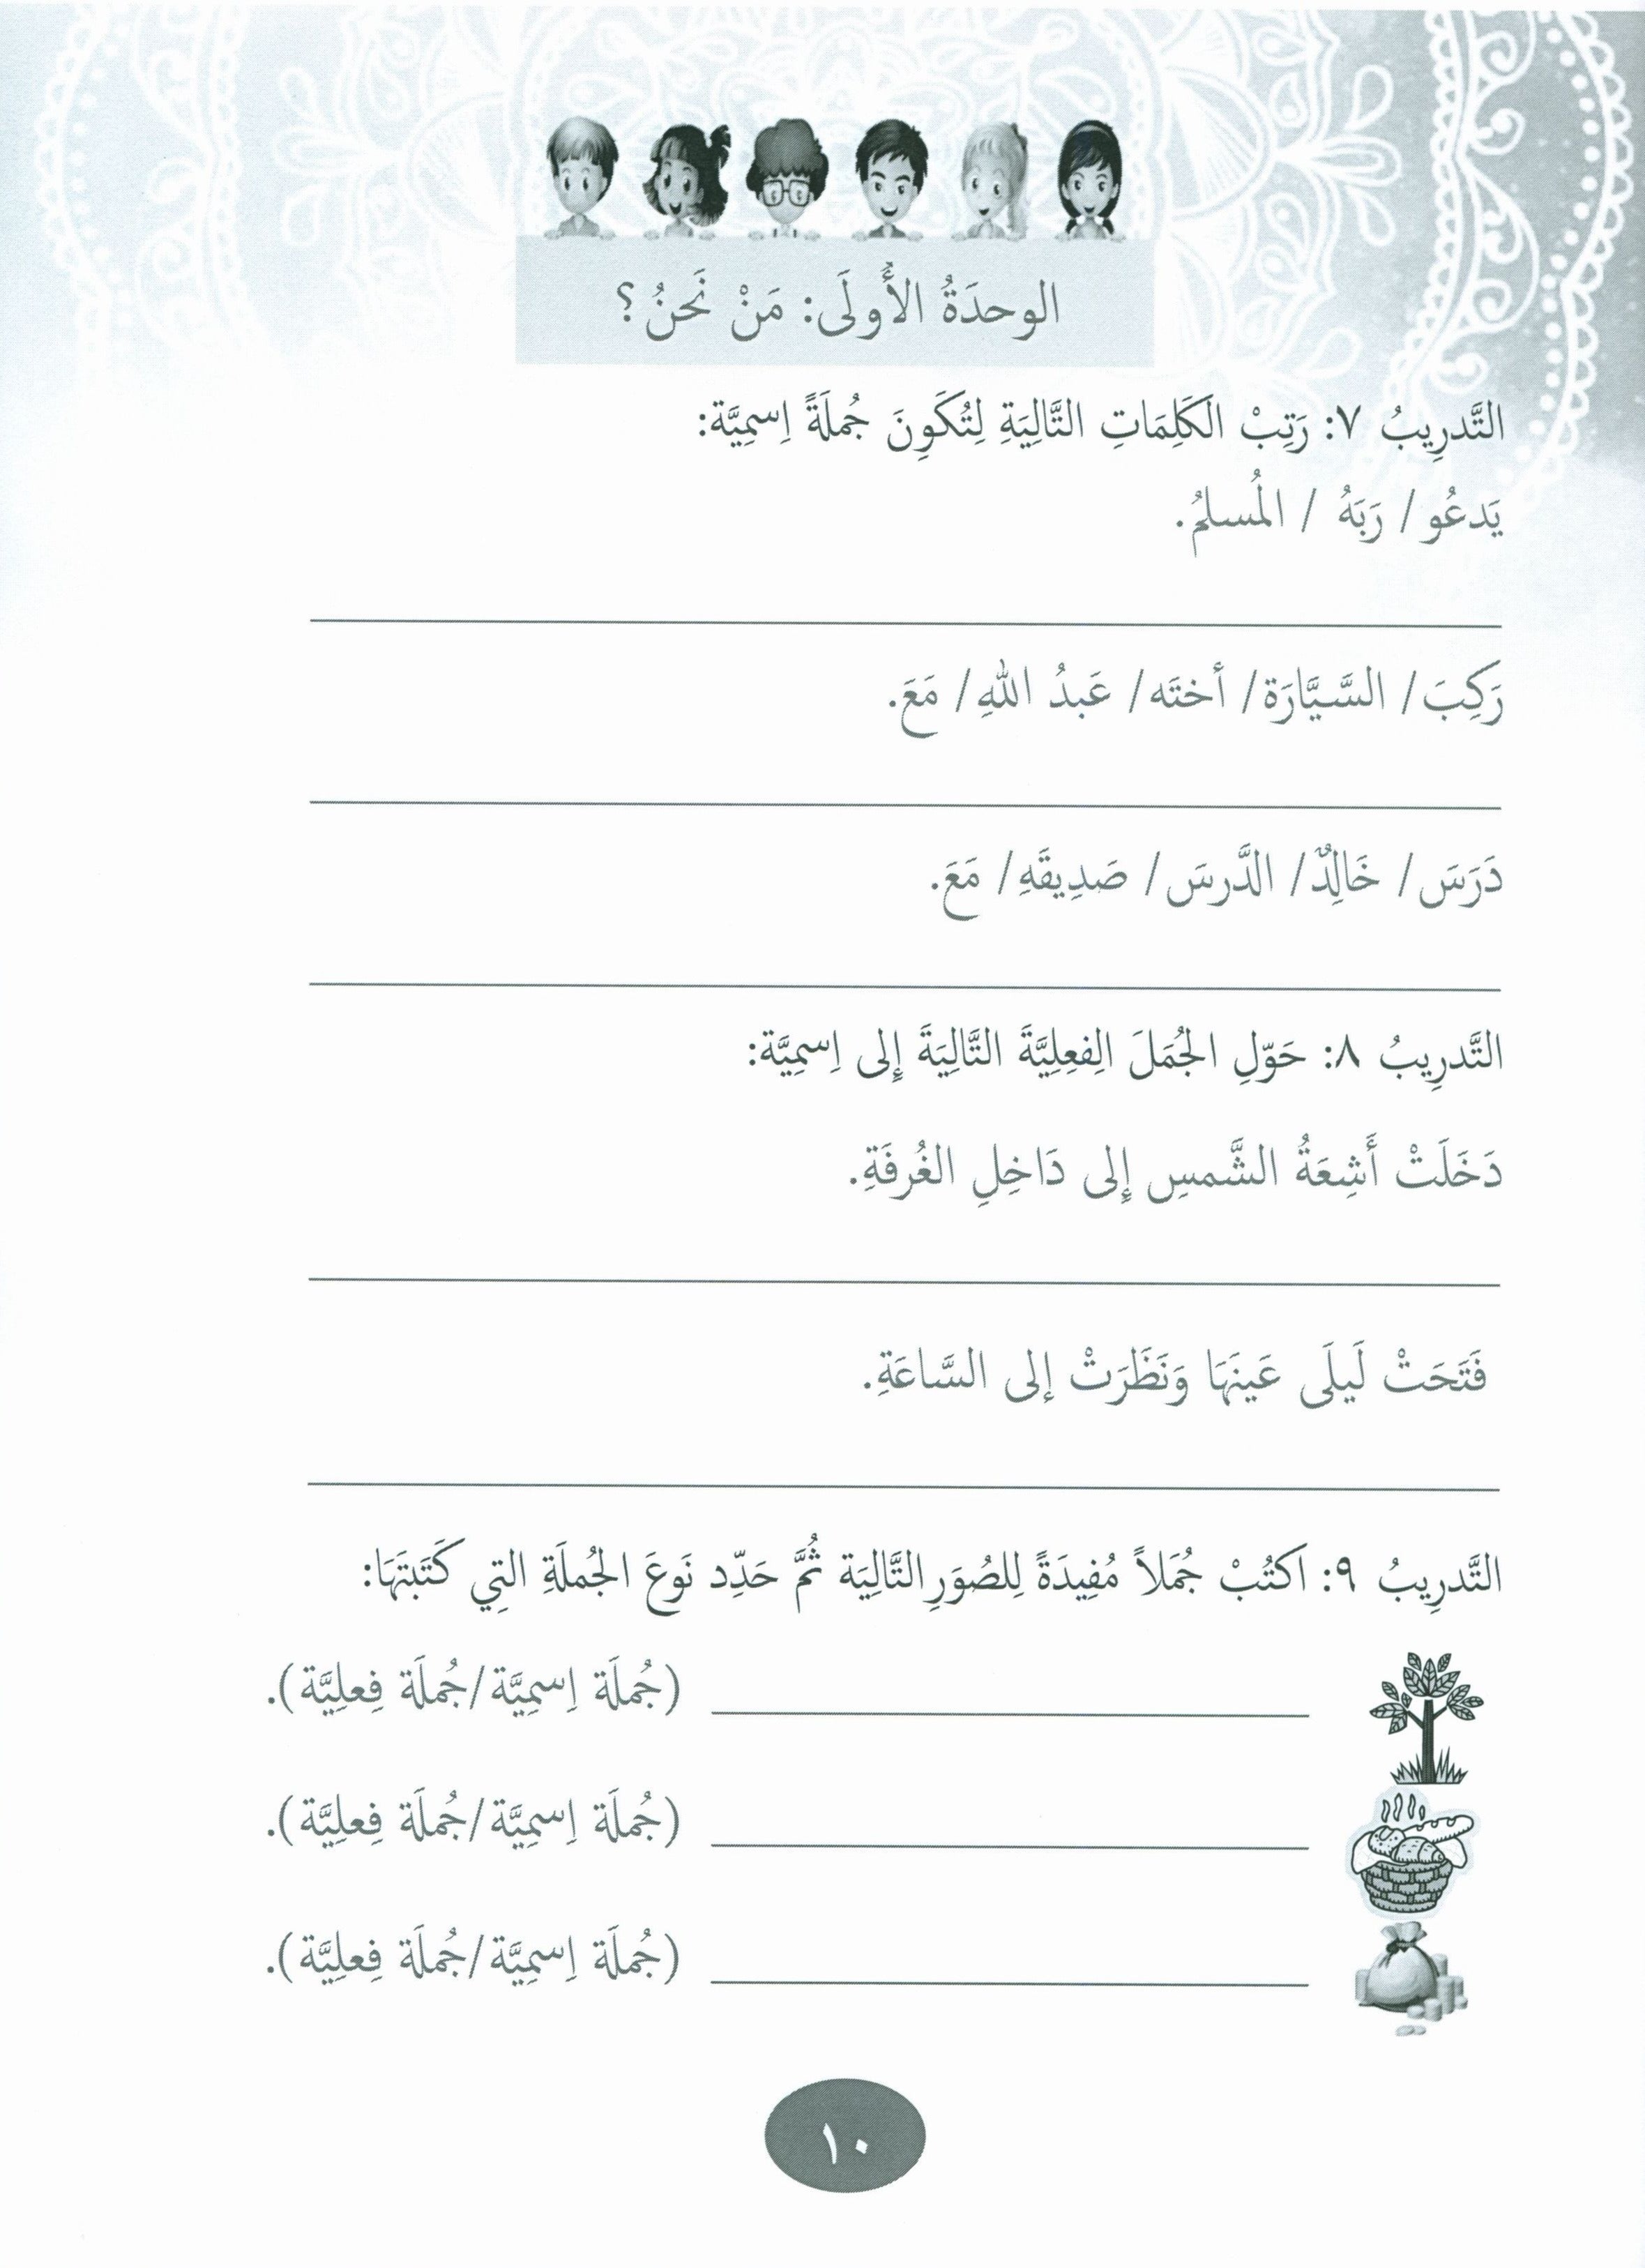 الوحدَةُ الأُولَى: مَنْ نَحنُ؟
التَّدرِيبُ ٧: رَتِبْ الكَلِمَاتِ التَّالِيَةِ لِتُكَوِنَ جُملَةً اِسمِيَّة:
يَدعُو/ رَبَهُ / المُسلمُ.
رَكِبَ/ السَّيَّارَة/ أختَه/ عَبدُ اللهِ/ مَعَ.
دَرَسَ/ خَالِدٌ/ الدَّرسَ/ صَدِيقَهِ/ مَعَ.
التَّدرِيبُ ٨: حَوّلِ الجُمَلَ الِفعِلِيَّةَ التَّالِيَةَ إِلى اِسمِيَّة:
دَخَلَتْ أَشِعَةُ الشَّمسِ إِلى دَاخِلِ الغُرفَةِ.
فَتَحَتْ لَيلَى عَينَهَا وَنَظَرَتْ إلى السَّاعَةِ.
التَّدرِيبُ ٩: اكتُبْ جُمَلاً مُفِيدَةً لِلصُوَرِ التَّالِيَة ثُمَّ حَدِّد نَوعَ الجُملَةِ التِي كَتَبتَهَا:
(جُملَة اِسمِيَّة/جُملَة فِعلِيَّة).
(جُملَة اِسمِيَّة/جُملَة فِعلِيَّة).
(جُملَة اِسمِيَّة/جُملَة فِعلِيَّة).
١٠